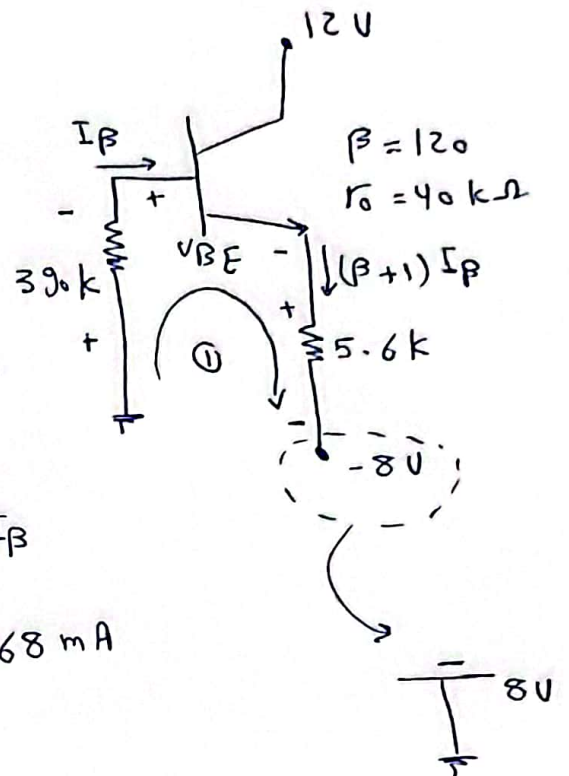 12 V
Iβ
β = 120
r₀ = 40 kΩ
- +
VBE -
(β+1) Iβ
390k
+
+
①
5.6k
-
-8V
Iβ
68 mA
-
8V